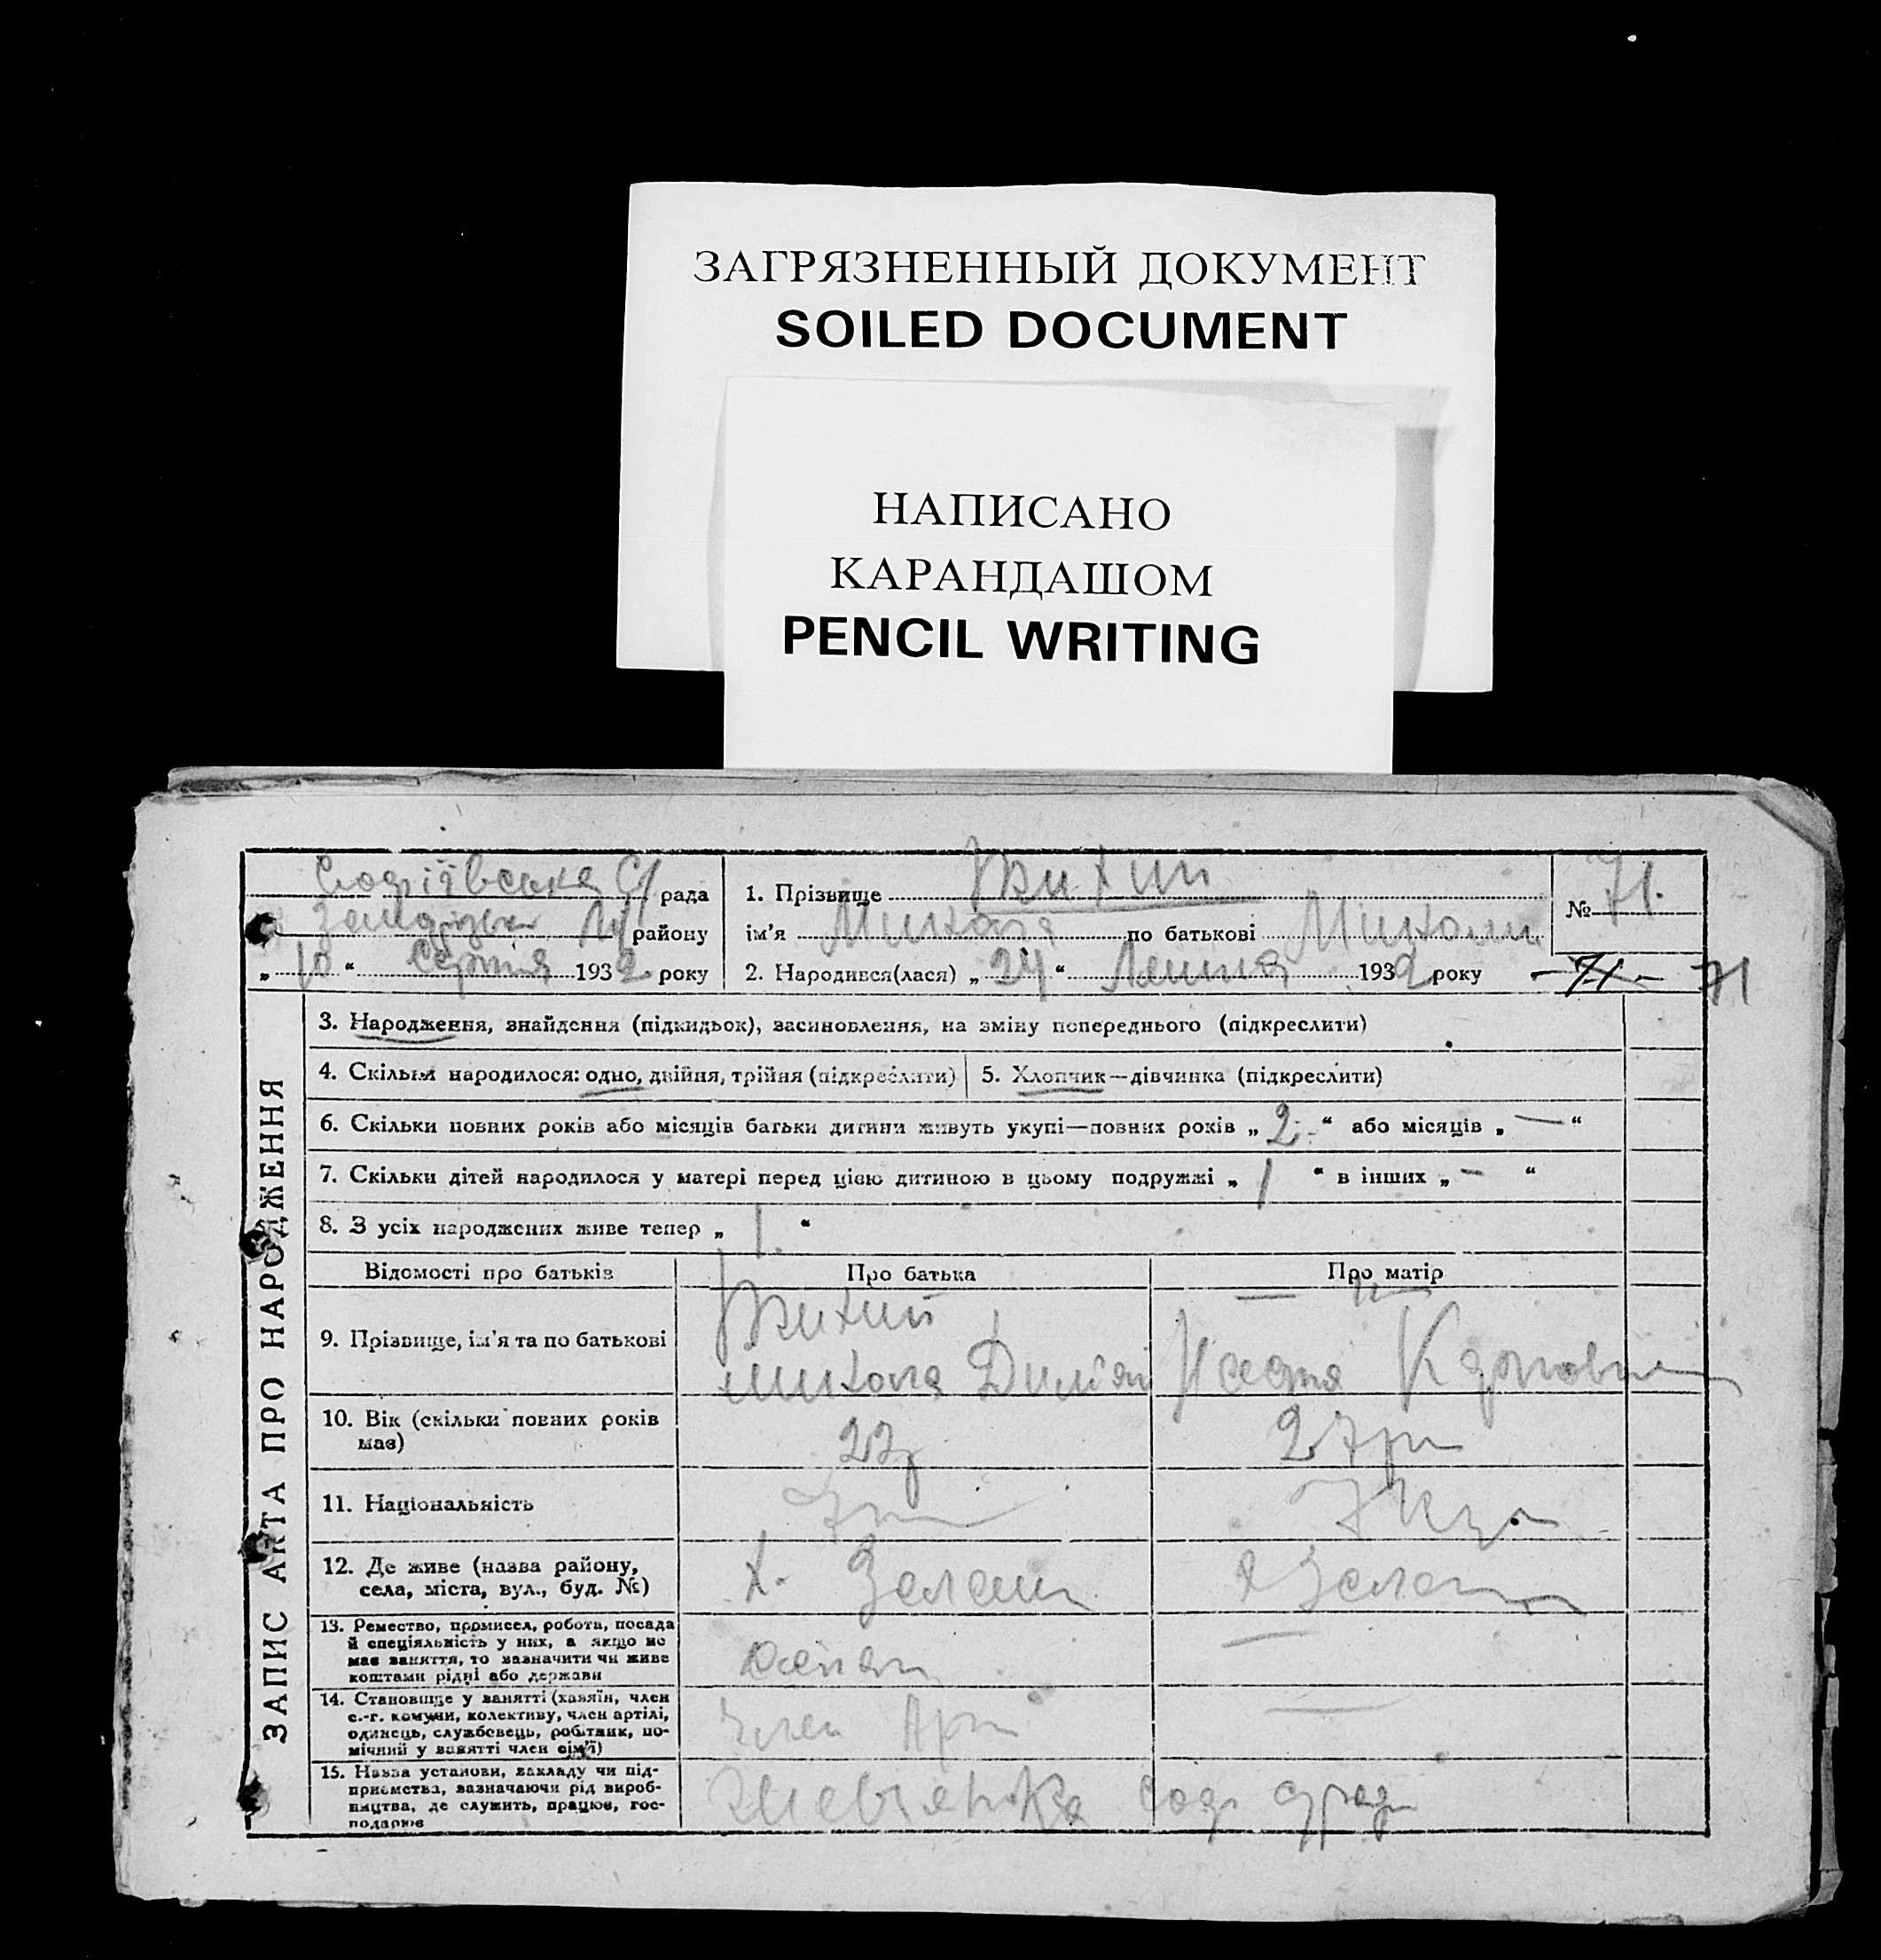 ЗАГРЯЗНЕННЫЙ ДОКУМЕНТ
SOILED DOCUMENT
НАПИСАНО
КАРАНДАШОМ
PENCIL WRITING
Софіївська С/ рада
району
„ 10 “ Серпня 1932 року
1. Прізвище
ім'я Микола по батькові Миколи
2. Народився(лася) „ 24 “ Липня 1932 року
№ 71.
- 71 - 71
ЗАПИС АКТА ПРО НАРОДЖЕННЯ
3. Народження, знайдення (підкидьок), засиновлення, на зміну попереднього (підкреслити)
4. Скільки народилося: одно, двійня, трійня (підкреслити)
5. Хлопчик—дівчинка (підкреслити)
6. Скільки повних років або місяців батьки дитини живуть укупі—повних років „ 2 “ або місяців „ — “
7. Скільки дітей народилося у матері перед цією дитиною в цьому подружжі „ 1 “ в інших „ - “
8. З усіх народжених живе тепер „ 1. “
Відомості про батьків
Про батька
Про матір
9. Прізвище, ім'я та по батькові
— " —
Микола
10. Вік (скільки повних років
має)
27 р
11. Національність
Укр
12. Де живе (назва району,
села, міста, вул., буд. №)
х. Зелени
х Зелен
13. Ремество, промисел, робота, посада
й спеціяльність у них, а якщо не
має заняття, то зазначити чи живе
коштами рідні або держави
—
14. Становище у занятті (хазяїн, член
с.-г. комуни, колективу, член артілі,
одинець, службовець, робітник, по-
мічний у занятті член сім'ї)
Член Арт
—
15. Назва установи, закладу чи під-
приємства, зазначаючи рід вироб-
ництва, де служить, працює, гос-
подарює
Шевченка Соф